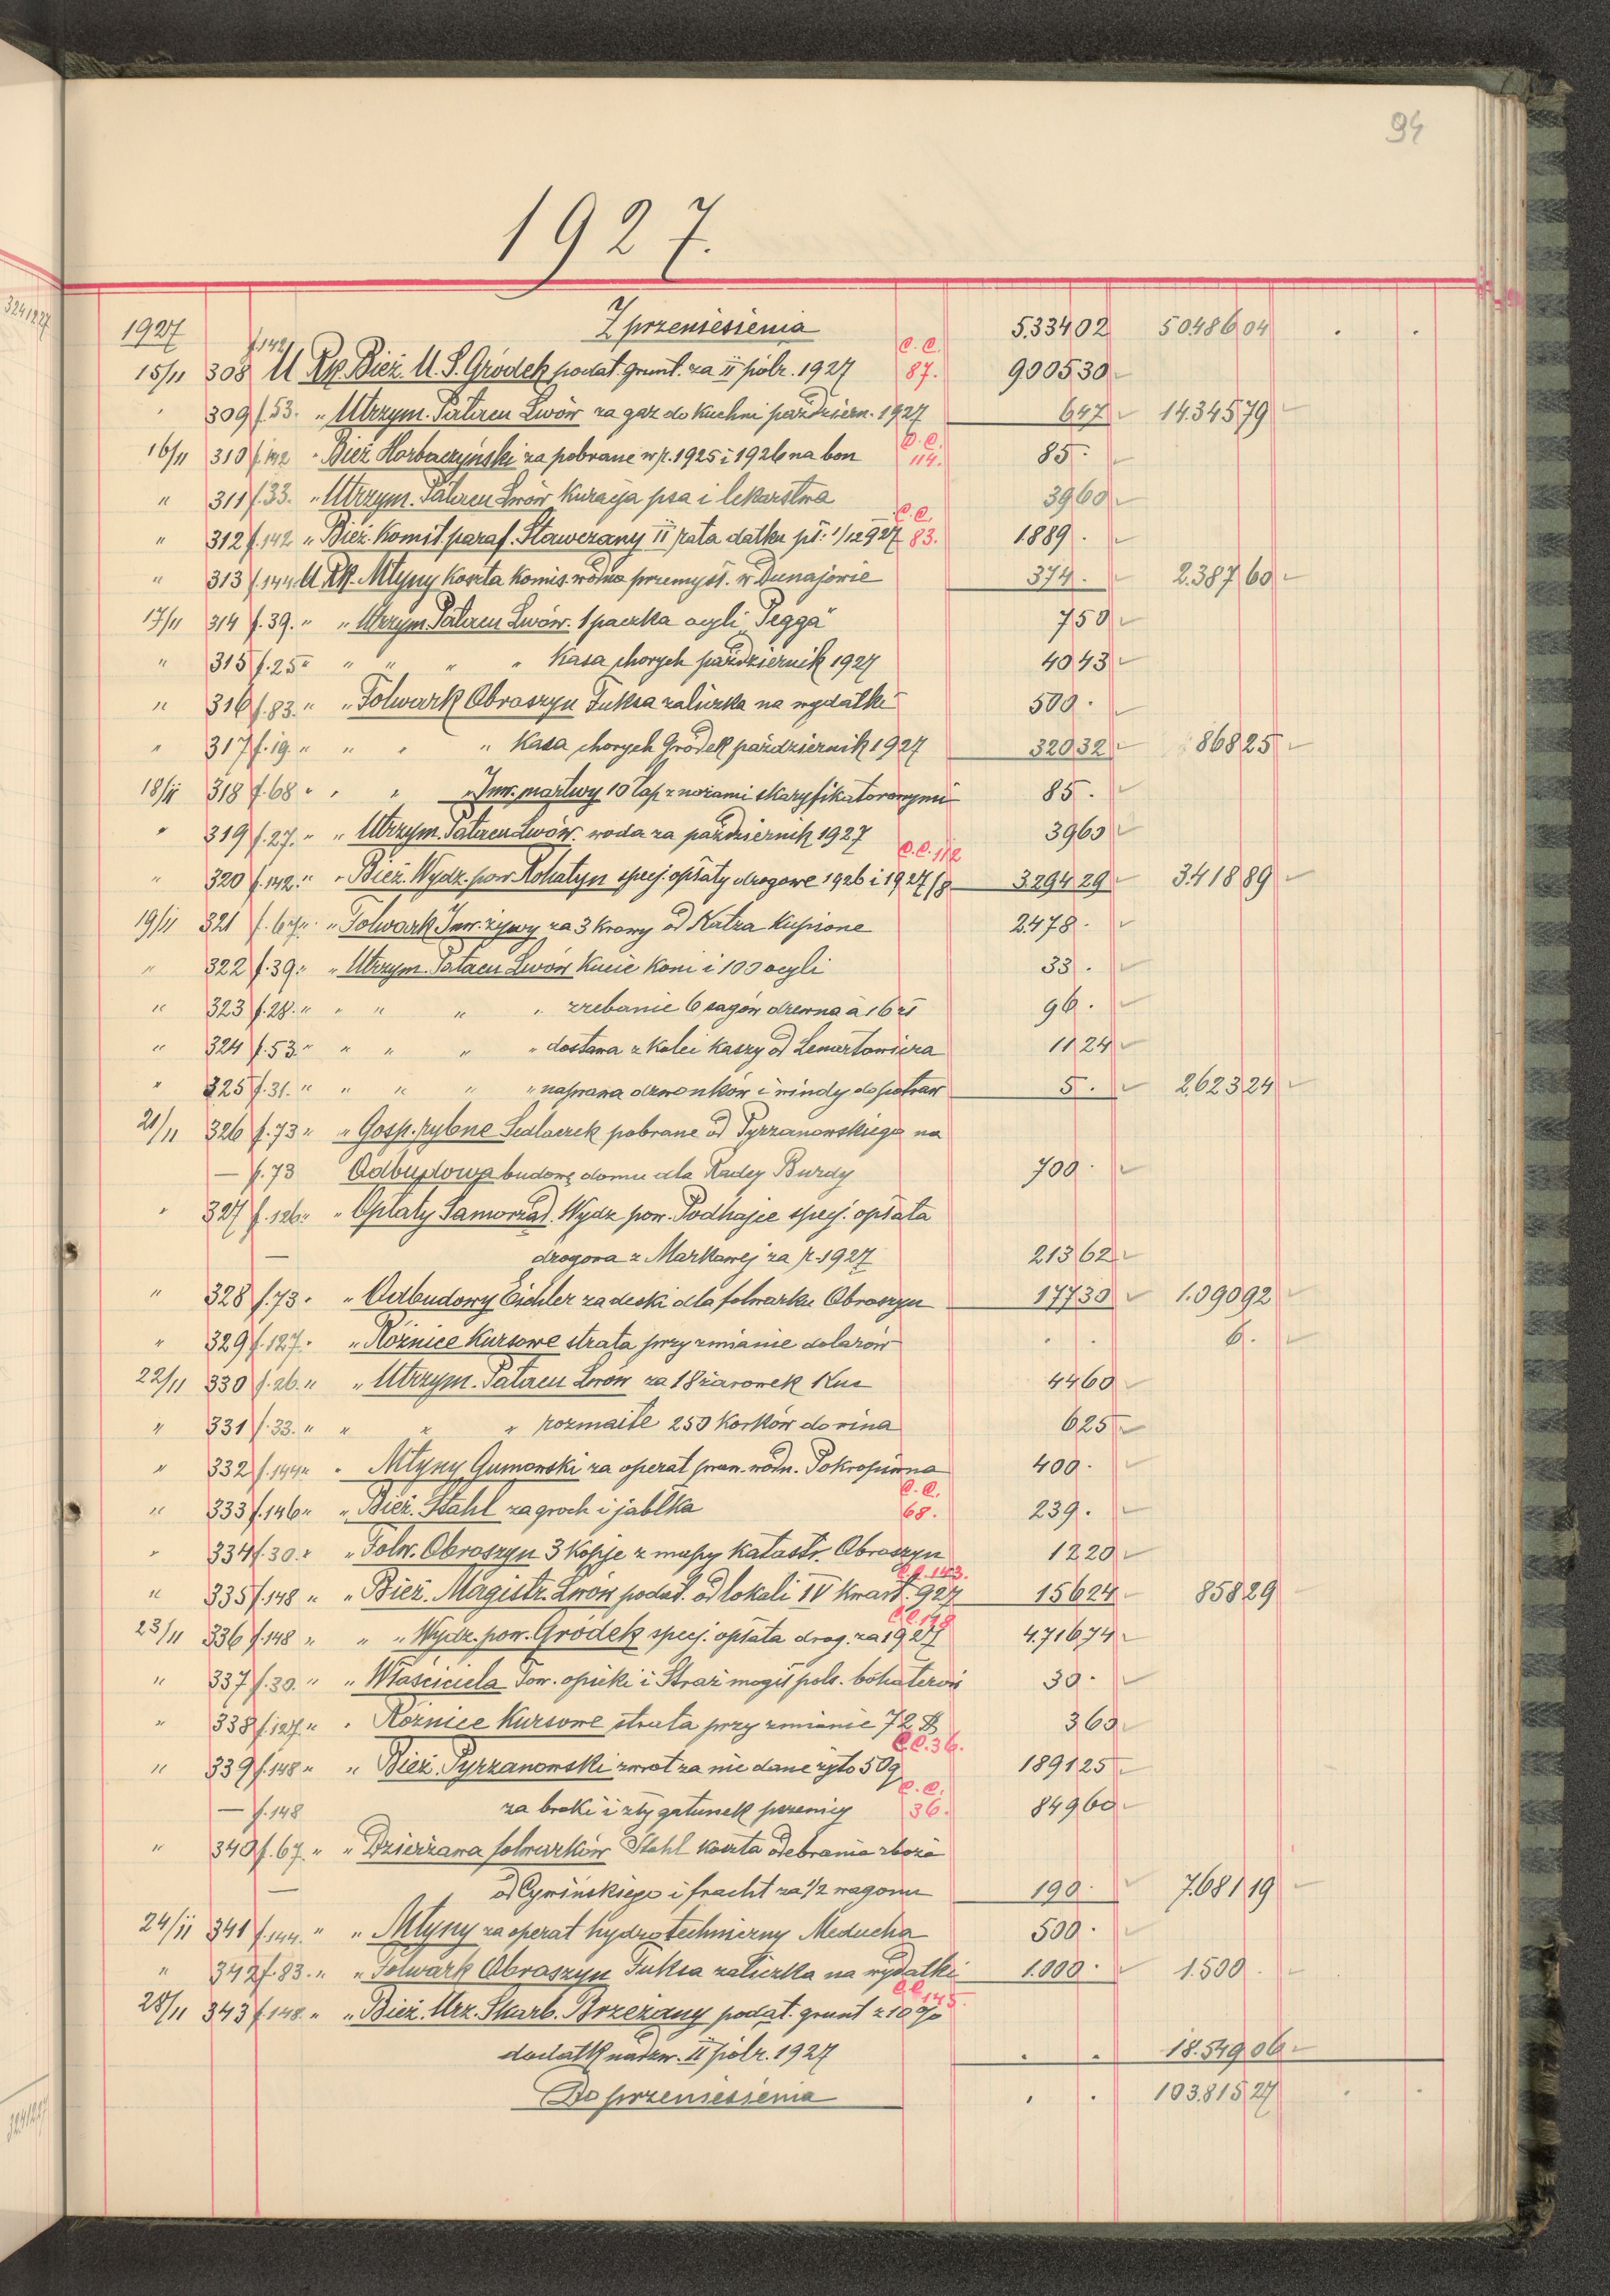 94
1927.
1927 Z przeniesienia 5.334 02 50.486 04 . .
f.142 C.C.
15/11 308 U Rk. Bież. U. S. Gródek podat. grunt. za II półr. 1927 87. 9005 30
" 309 f.53. " Utrzym. Pałacu Lwów za gaz do kuchni październ. 1927 6 47 14.345 79
C.C.
16/11 310 f.142 " Bież Horbaczyński za pobrane w r. 1925 i 1926 na bon 114. 85.
" 311 f.33. " Utrzym. Pałacu Lwów Kuracja psa i lekarstwa 39 60
C.C.
" 312 f.142 " Bież. Komit. paraf. Stawczany II rata datku pł. 1/12 927 83. 1.889 .
" 313 f.144 U Rk. Młyny Koszta Komis. wodno przemysł. w Dunajowie 374. 2.387 60
17/11 314 f.39. " " Utrzym. Pałacu Lwów. 1 paczka ocyli "Pegga" 7 50
" 315 f.25 " " " " " Kasa chorych październik 1927 40 43
" 316 f.83. " " Folwark Obroszyn Fuksa zaliczka na wydatki 500 .
" 317 f.19. " " " " Kasa chorych Gródek październik 1927 320 32 868 25
18/11 318 f.68 " " " " Inw. martwy 10 łap z nożami skaryfikatorowymi 85 .
" 319 f.27. " " Utrzym. Pałacu Lwów. woda za październik 1927 39 60
C.C. 112
" 320 f.142. " " Bież. Wydz. pow. Rohatyn specj. opłaty drogowe 1926 i 1927/8 3.294 29 3.418 89
19/11 321 f.67. " " Folwark Inw. żywy za 3 krowy od Katza Kupione 2.478 .
" 322 f.39. " " Utrzym. Pałacu Lwów Kucie Koni i 100 ocyli 33 .
" 323 f.28. " " " " " zrebanie 6 sągów drewna à 16 zł 96 .
" 324 f.53. " " " " " dostawa z Kolei kaszy od Lemartowicza 11 24
" 325 f.31. " " " " " naprawa dzwonków i windy do potraw 5 . 2,623 24
21/11 326 f.73 " " Gosp. rybne Sedlaczek pobrane od Pyrzanowskiego na
— f.73 Odbudowa budowę domu dla Radcy Burdy 700 .
" 327 f.126. " " Opłaty Samorząd. Wydz pow. Podhajce specj. opłata
— drogowa z Markowej za r. 1927 213 62
" 328 f.73. " " Odbudowy Eichler za deski dla folwarku Obroszyn 177 30 1.090 92
" 329 f.127. " " Różnice Kursowe strata przy zmianie dolarów . . 6 .
22/11 330 f.26. " " Utrzym. Pałacu Lwów za 18 żarowek Kus 44 60
" 331 f.33. " " " " rozmaite 250 Korków do wina 6 25
" 332 f.144 " " Młyny Gumowski za operat praw. wodn. Pokropiwna 400 .
C.C.
" 333 f.146 " " Bież. Stahl za groch i jabłka 68. 239 .
" 334 f.30. " " Folw. Obroszyn 3 Kopje z mapy Katastr. Obroszyn 12 20
C.C. 143.
" 335 f.148 " " Bież. Magistr. Lwów podat. od lokali IV Kwart. 927 156 24 858 29
C.C. 118
23/11 336 f.148 " " " Wydz. pow. Gródek specj. opłata drog. za 1927 4.716 74
" 337 f.30. " " Właściciela Tow. opieki i Straż mogił pols. bohaterów 30 .
" 338 f.127. " " Różnice Kursowe strata przy zmianie 72 $ 3 60
C.C. 36.
" 339 f.148 " " Bież. Pyrzanowski zwrot za nie dane żyto 50 q 1891 25
C.C.
— f.148 za braki i zły gatunek pszenicy 36. 849 60
" 340 f.67. " " Dzierżawa folwarków Stahl koszta odebrania zboża
— od Cywińskiego i fracht za 1/2 wagonu 190 . 7.681 19
24/11 341 f.144. " " Młyny za operat hydrotechniczny Meducha 500 .
" 342 f.83. " " Folwark Obroszyn Fuksa zaliczka na wydatki 1.000 . 1.500 .
C.C. 145.
28/11 343 f.148. " " Bież. Urz. Skarb. Brzeżany podat. grunt z 10 %
dodatk nadzw. II półr. 1927 . . 18.549 06
Do przeniesienia . . 103.815 27 . .